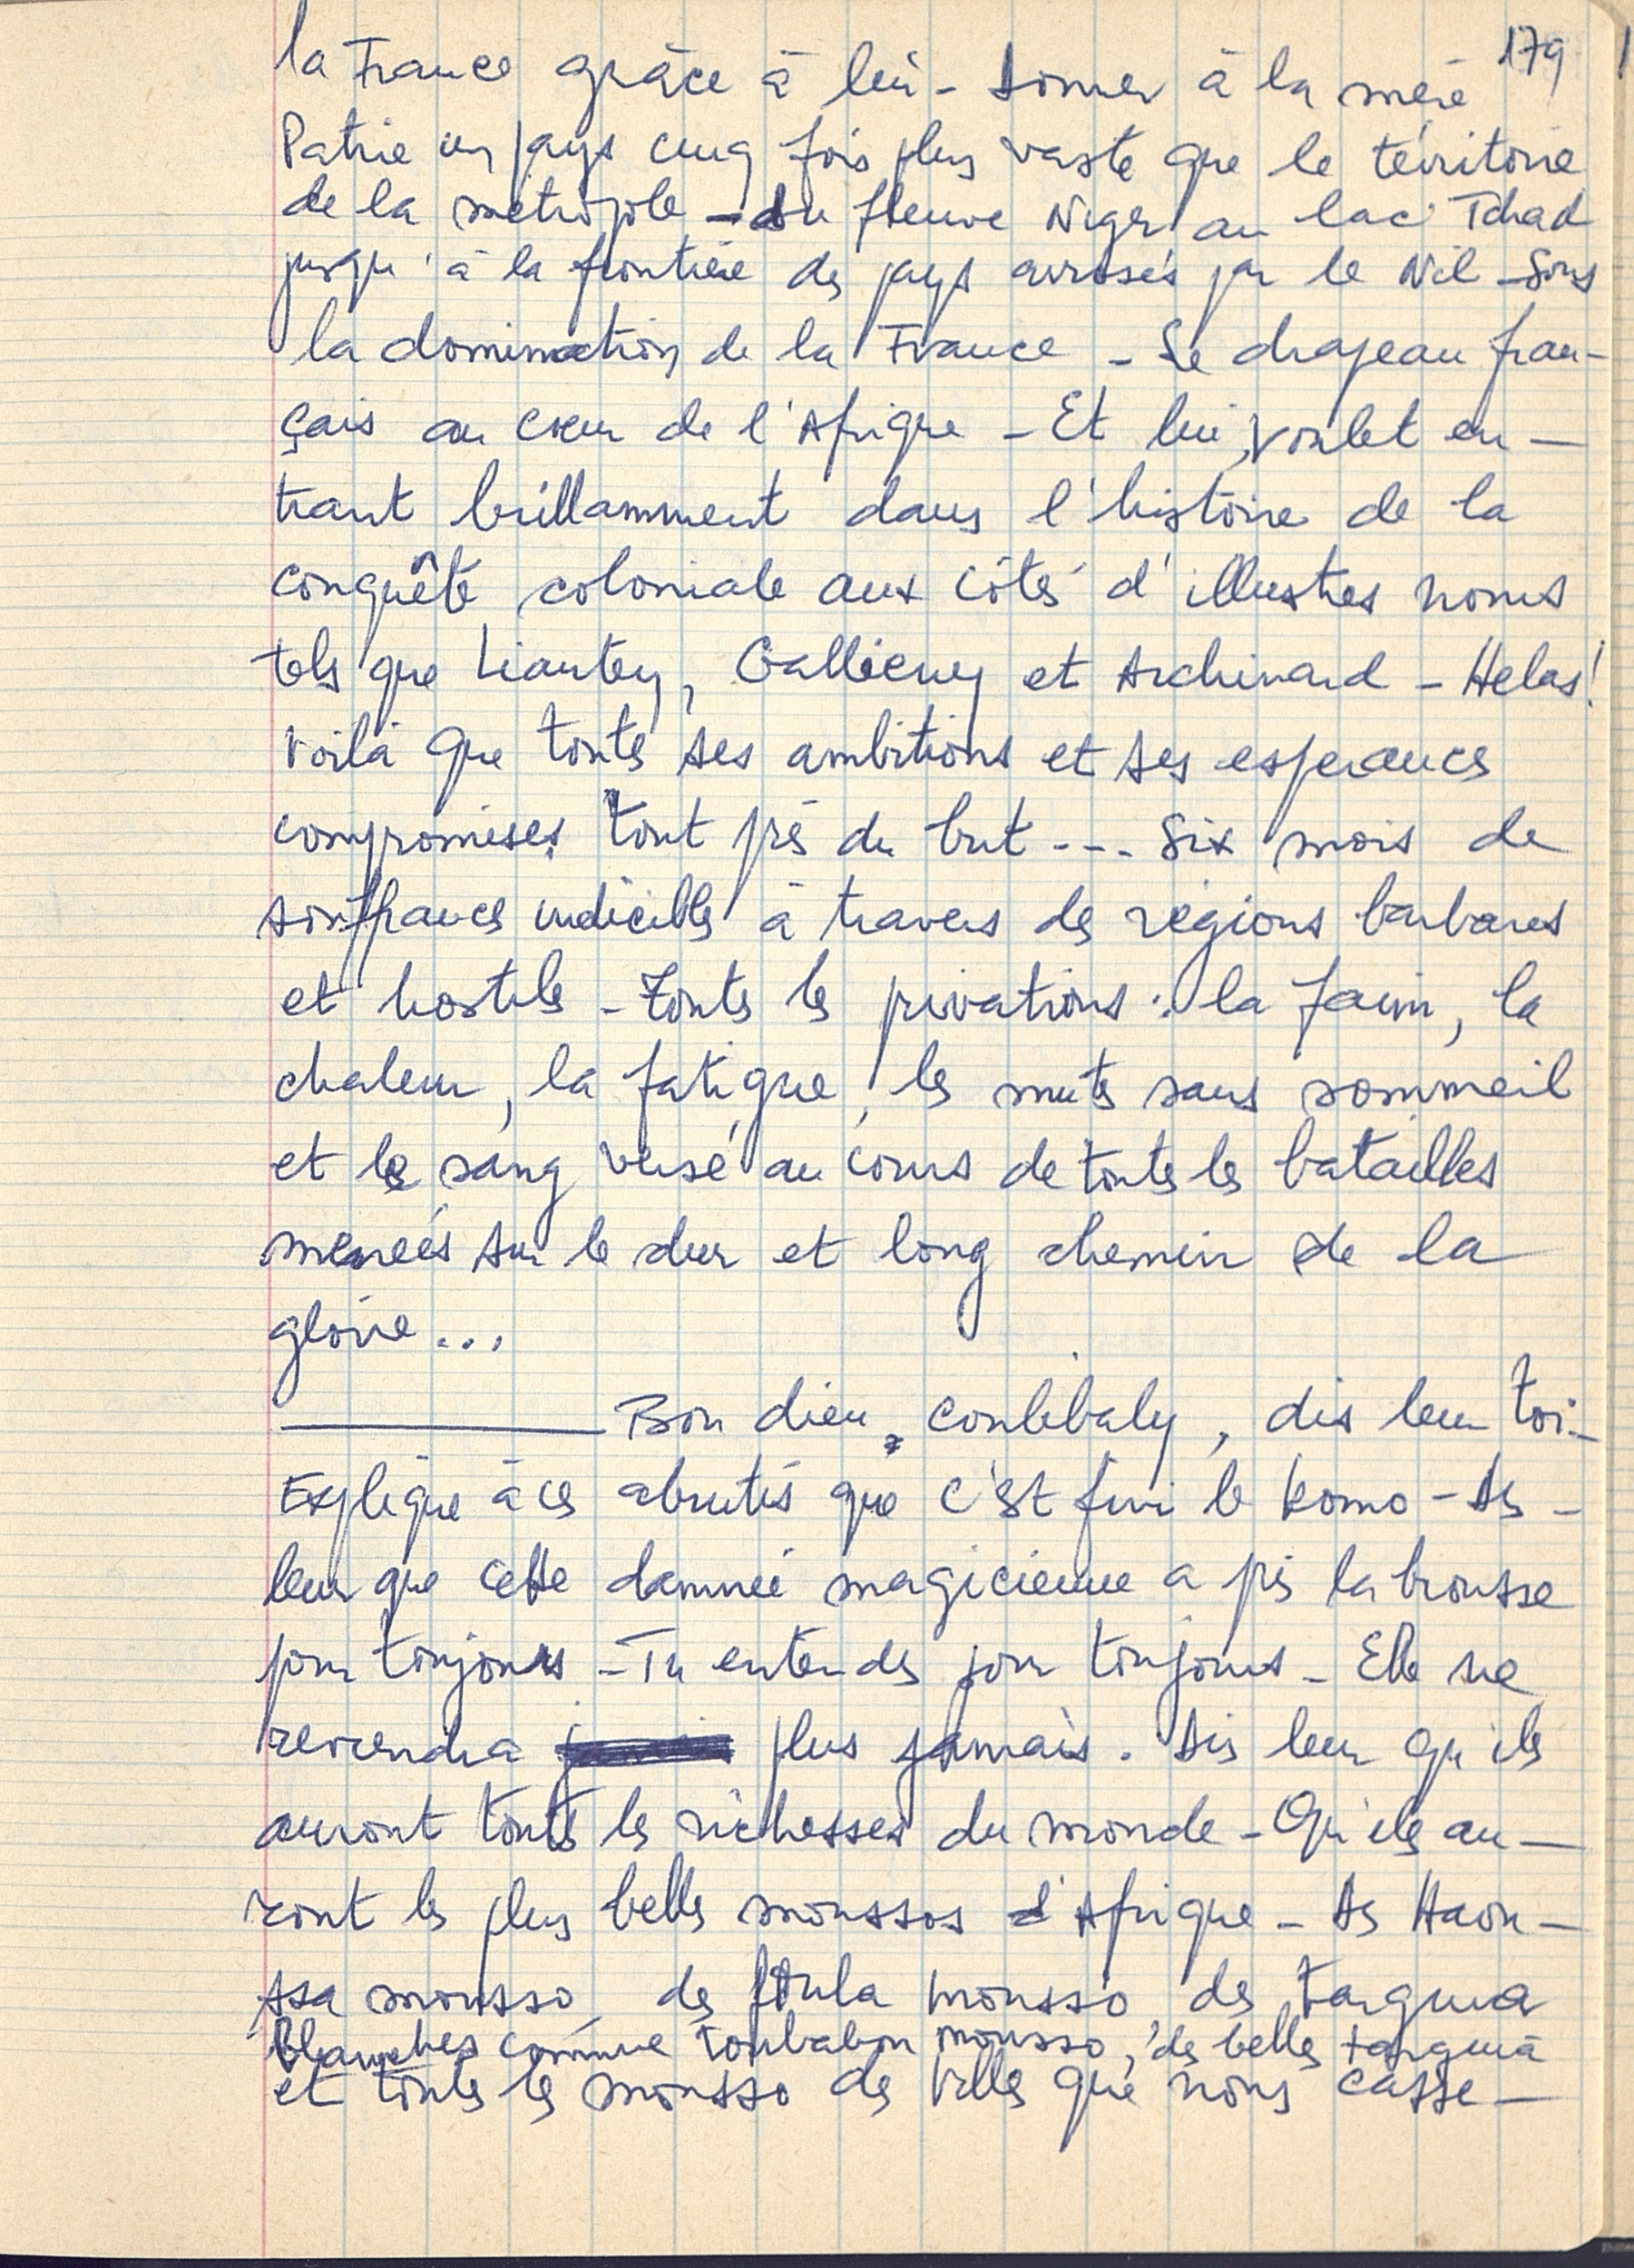 179
la France grâce à lui - Donner à la mère
Patrie un pays cinq fois plus vaste que le territoire
de la métropole - du fleuve Niger au lac Tchad
jusqu'à la frontière des pays arrosés par le Nil - Sous
la domination de la France - Le drapeau fran-
çais au cœur de l'Afrique - Et lui, Voulet en-
trant brillamment dans l'histoire de la
conquête coloniale aux côtés d'illustres noms
tels que Liautey, Gallieny et Archinard - Helas!
Voilà que toutes ses ambitions et ses esperances
compromises tout près du but --- Six mois de
souffrances indicibles à travers des régions barbares
et hostiles - Toutes les privations : la faim, la
chaleur, la fatigue, les nuits sans sommeil
et le sang versé au cours de toutes les batailles
menées sur le dur et long chemin de la
gloire...
Bon dieu, Coulibaly, dis leur toi -
Explique à ces abrutis que c'est fini le komo - Dis -
leur que cette damnée magicienne a pris la brousse
pour toujours - Tu entends pour toujours - Elle ne
reviendra plus jamais. Dis leur qu'ils
auront toutes les richesses du monde - Qu'ils au-
ront les plus belles moussos d'Afrique - Des Haou-
ssa mousso, des foula mousso des targuia
blanches comme toubabou mousso, des belles targuia
et toutes les mousso des villes que nous casse-